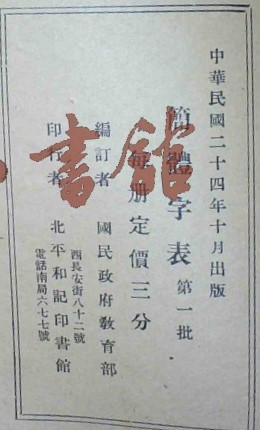 中華民國二十四年十月出版
簡體字表 第一批
每册定價三分
編訂者 國民政府教育部
印行者 北平和記印書館
西長安街八十二號
電話南局六七七號
書館